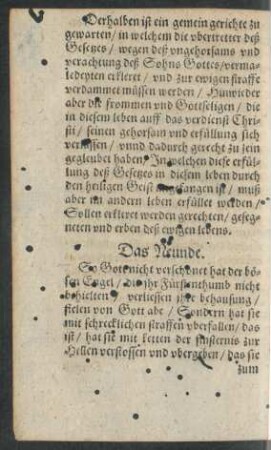 Derhalben ist ein gemein gerichte zu
gewarten / in welchem die vbertretter deß
Gesetzes / wegen deß vngehorsams vnd
verachtung deß Sohns Gottes / verma-
ledeyten erkleret / vnd zur ewigen straffe
verdammet müssen werden / Hinwieder
aber die frommen vnd Gottseligen / die
in diesem leben auff das verdienst Chri-
sti / seinen gehorsam vnd erfüllung sich
verlassen / vnnd dadurch gerecht zu sein
gegleubet haben / In welchen diese erfül-
lung deß Gesetzes in diesem leben durch
den heiligen Geist angefangen ist / muß
aber im andern leben erfüllet werden /
Sollen erkleret werden gerechten / geseg-
neten vnd erben deß ewigen lebens.
Das Neunde.
So Gott nicht verschonet hat der bö-
sen Engel / die ihr Fürstenthumb nicht
behielten / verliessen ihre behausung /
fielen von Gott abe / Sondern hat sie
mit schrecklichen straffen vberfallen / das
ist / hat sie mit ketten der finsternis zur
Hellen verstossen vnd vbergeben / das sie
zum